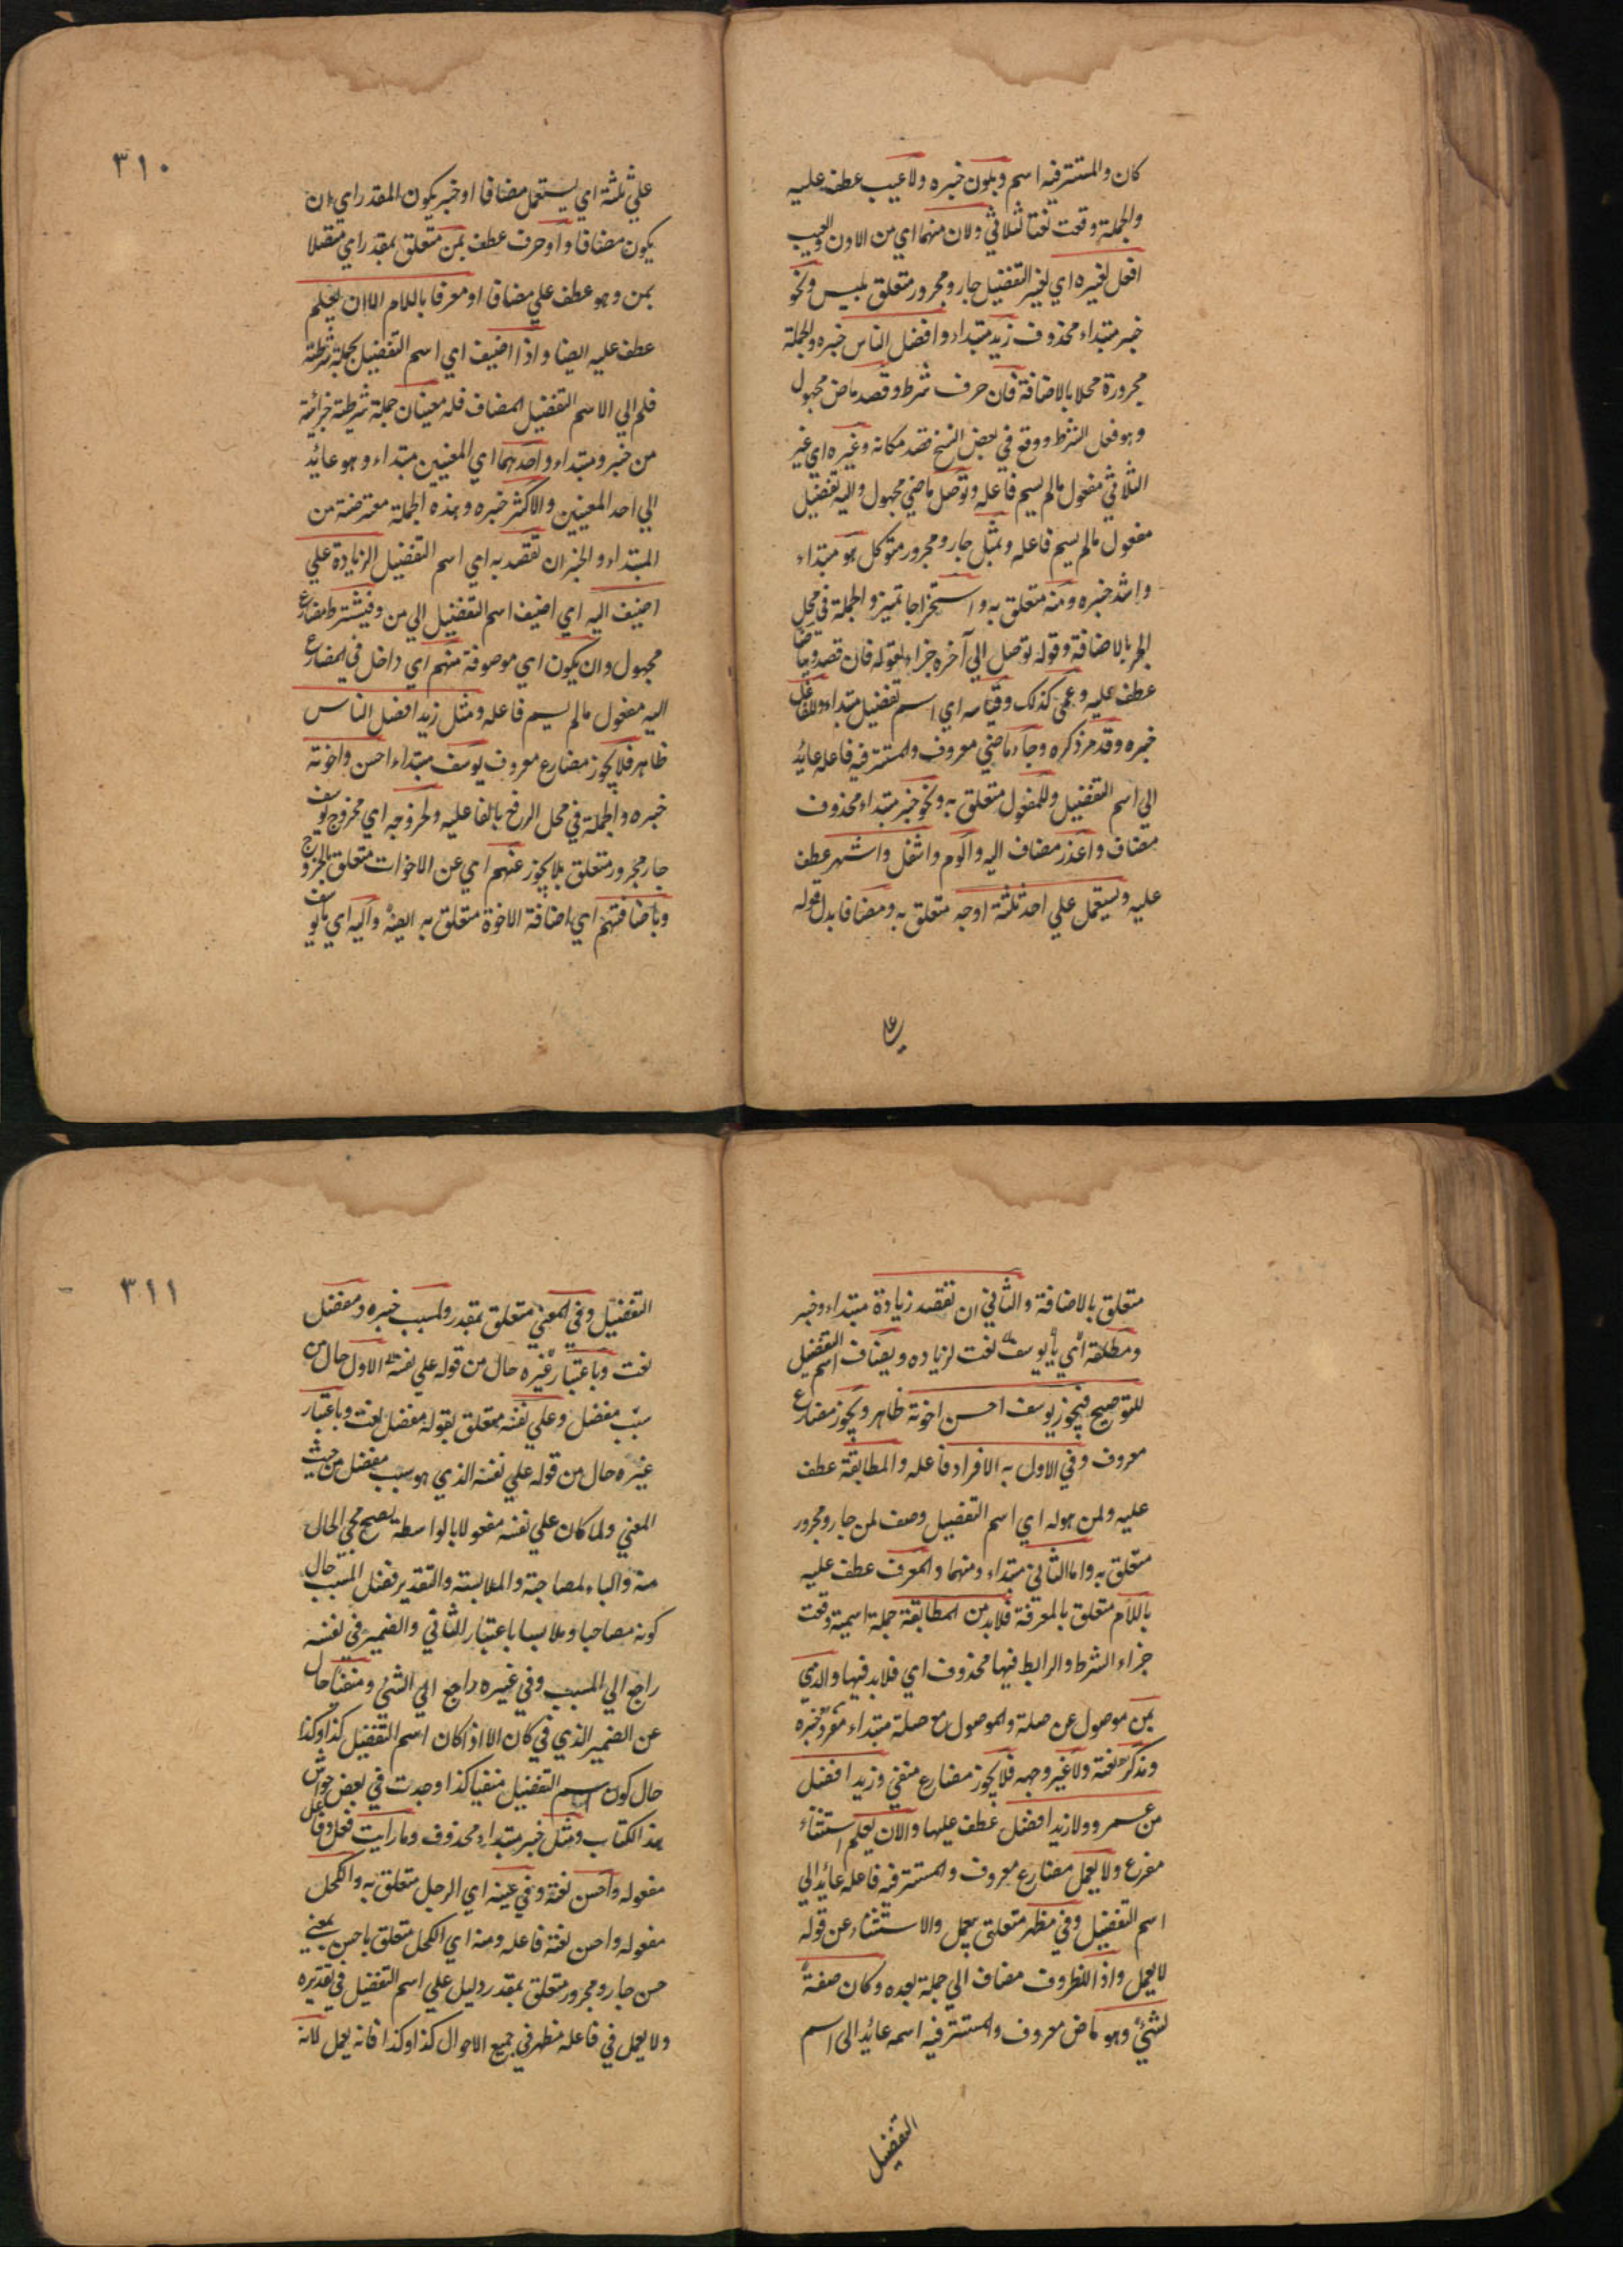 كان والمستتر فيه اسم وبلون خبره ولا عيب عطف عليه
والجملة وقعت نعتا لثلاثي ولان منهما اي من اللون والعيب
افعل لغيره اي لغير التفضيل جار ومجرور متعلق بليس ونحو
خبر مبتداء محذوف زيد مبتداء وافضل الناس خبره والجملة
مجرورة محلا بالاضافة فان حرف شرط وقصد ماض مجهول
وهو فعل الشرط ووقع في بعض النسخ فقد مكانه وغيره اي غير
الثلاثي مفعول مالم يسم فاعله وتوصل ماضي مجهول واليه تفضيل
مفعول مالم يسم فاعله وبمثل جار ومجرور متوكل هو مبتداء
واشد خبره ومنه متعلق به واستخراجا تميز والجملة في محل
الجر بالاضافة وقوله توصل الي آخره جزاء لقوله فان قصد وبياضا
عطف عليه وعمى كذلك وقياسه اي اسم تفضيل مبتداء وللفاعل
خبره وقد مر ذكره وجاء ماضي معروف والمستتر فيه فاعله عائد
الي اسم التفضيل وللمفعول متعلق به ونحو خبر مبتداء محذوف
مضاف واعذر مضاف اليه والوم واشغل واشهر عطف
عليه ويستعمل علي احد ثلثة اوجه متعلق به ومضافا بدل قوله
علي
٣١٠
علي ثلثة اي يستعمل مضافا او خبر يكون المقدر اي ان
يكون مضافا واو حرف عطف بمن متعلق بمقدر اي متصلا
بمن وهو عطف علي مضافا او معرفا باللام الا ان يعلم
عطف عليه ايضا واذا اضيف اي اسم التفضيل بجملة شرطية
فله الي الاسم التفضيل المضاف فله معنيان جملة شرطية جزائية
من خبر ومبتداء واحدهما اي المعنيين مبتداء وهو عائد
الي احد المعنيين والاكثر خبره وهذه الجملة معترضة من
المبتداء والخبر ان تقصد به اي اسم التفضيل الزيادة علي
اضيف اليه اي اضيف اسم التفضيل الي من وفيشترط مضارع
مجهول وان يكون اي موصوفة منهم اي داخل في المضارع
اليه مفعول مالم يسم فاعله ومثل زيد افضل الناس
ظاهر فلا يجوز مضارع معروف يوسف مبتداء احسن واخوته
خبره والجملة في محل الرفع بالفاعليه ولخروجه اي لخروج يوسف
جار مجرور متعلق بلا يجوز عنهم اي عن الاخوات متعلق بالخروج
وباضافتهم اي اضافة الاخوة متعلق به ايضا واليه اي يا يوسف
متعلق بالاضافة والثاني ان تقصد زيادة مبتداء وخبر
ومطلقة اي يا يوسف نعت لزياده ويضاف اسم التفضيل
للتوضيح فيجوز يوسف احسن اخوته ظاهر ويجوز مضارع
معروف وفي الاول به الافراد فاعله والمطابقة عطف
عليه ولمن هوله اي اسم التفضيل وصف لمن جار ومجرور
متعلق به واما الثاني مبتداء ومنهما والمعرف عطف عليه
باللام متعلق بالمعرفة فلابد من المطابقة جملة اسمية وقعت
جزاء الشرط والرابط فيها محذوف اي فلابد فيها والذي
بمن موصول عن صلة والموصول مع صلة مبتداء مفرد خبره
ومذكر نعته ولا غير وجهه فلا يجوز مضارع منفي وزيد افضل
من عمرو ولا زيد افضل عطف عليها والا ان يعلم استثناء
مفرع ولا يعمل مضارع معروف والمستتر فيه فاعله عائد الي
اسم التفضيل وفي مظهر متعلق بيعمل والاستثناء عن قوله
لا يعمل واذا للظروف مضاف الي جملة بعده وكان صفة
لشيء وهو ماض معروف والمستتر فيه اسمه عائد الى اسم
التفضيل
٣١١
التفضيل وفي المعني متعلق بمقدر ولمسبب خبره ومفضل
نعت وباعتبار غيره حال من قوله علي نفسه الاول حال من
سبب مفضل وعلي نفسه متعلق بقوله مفضل نعت وباعتبار
غيره حال من قوله علي نفسه الذي هو سبب مفضل من حيث
المعني ولما كان علي نفسه مفعولا بالواسطة يصح مجي الحال
منه والباء لمصاحبة والملابسة والتقدير فضل المسبب حال
كونه مصاحبا وملابسا باعتبار الثاني والضمير في نفسه
راجع الي المسبب وفي غيره راجع الي الشئ ومنفيا حال
عن الضمير الذي في كان الا اذا كان اسم التفضيل كذا وكذا
حال كون اسم التفضيل منفيا كذا وجدت في بعض حواش
هذ الكتاب ومثل خبر مبتداء محذوف وما رايت فعل وفاعل
مفعوله واحسن نعته وفي عينه اي الرجل متعلق به والكحل
مفعوله واحسن نعته فاعله ومنه اي الكحل متعلق باحسن بمعني
حسن جار ومجرور متعلق بمقدر دليل علي اسم التفضيل في تقديره
ولا يعمل في فاعله مظهر في جميع الاحوال كذا وكذا فانه يعمل لانه